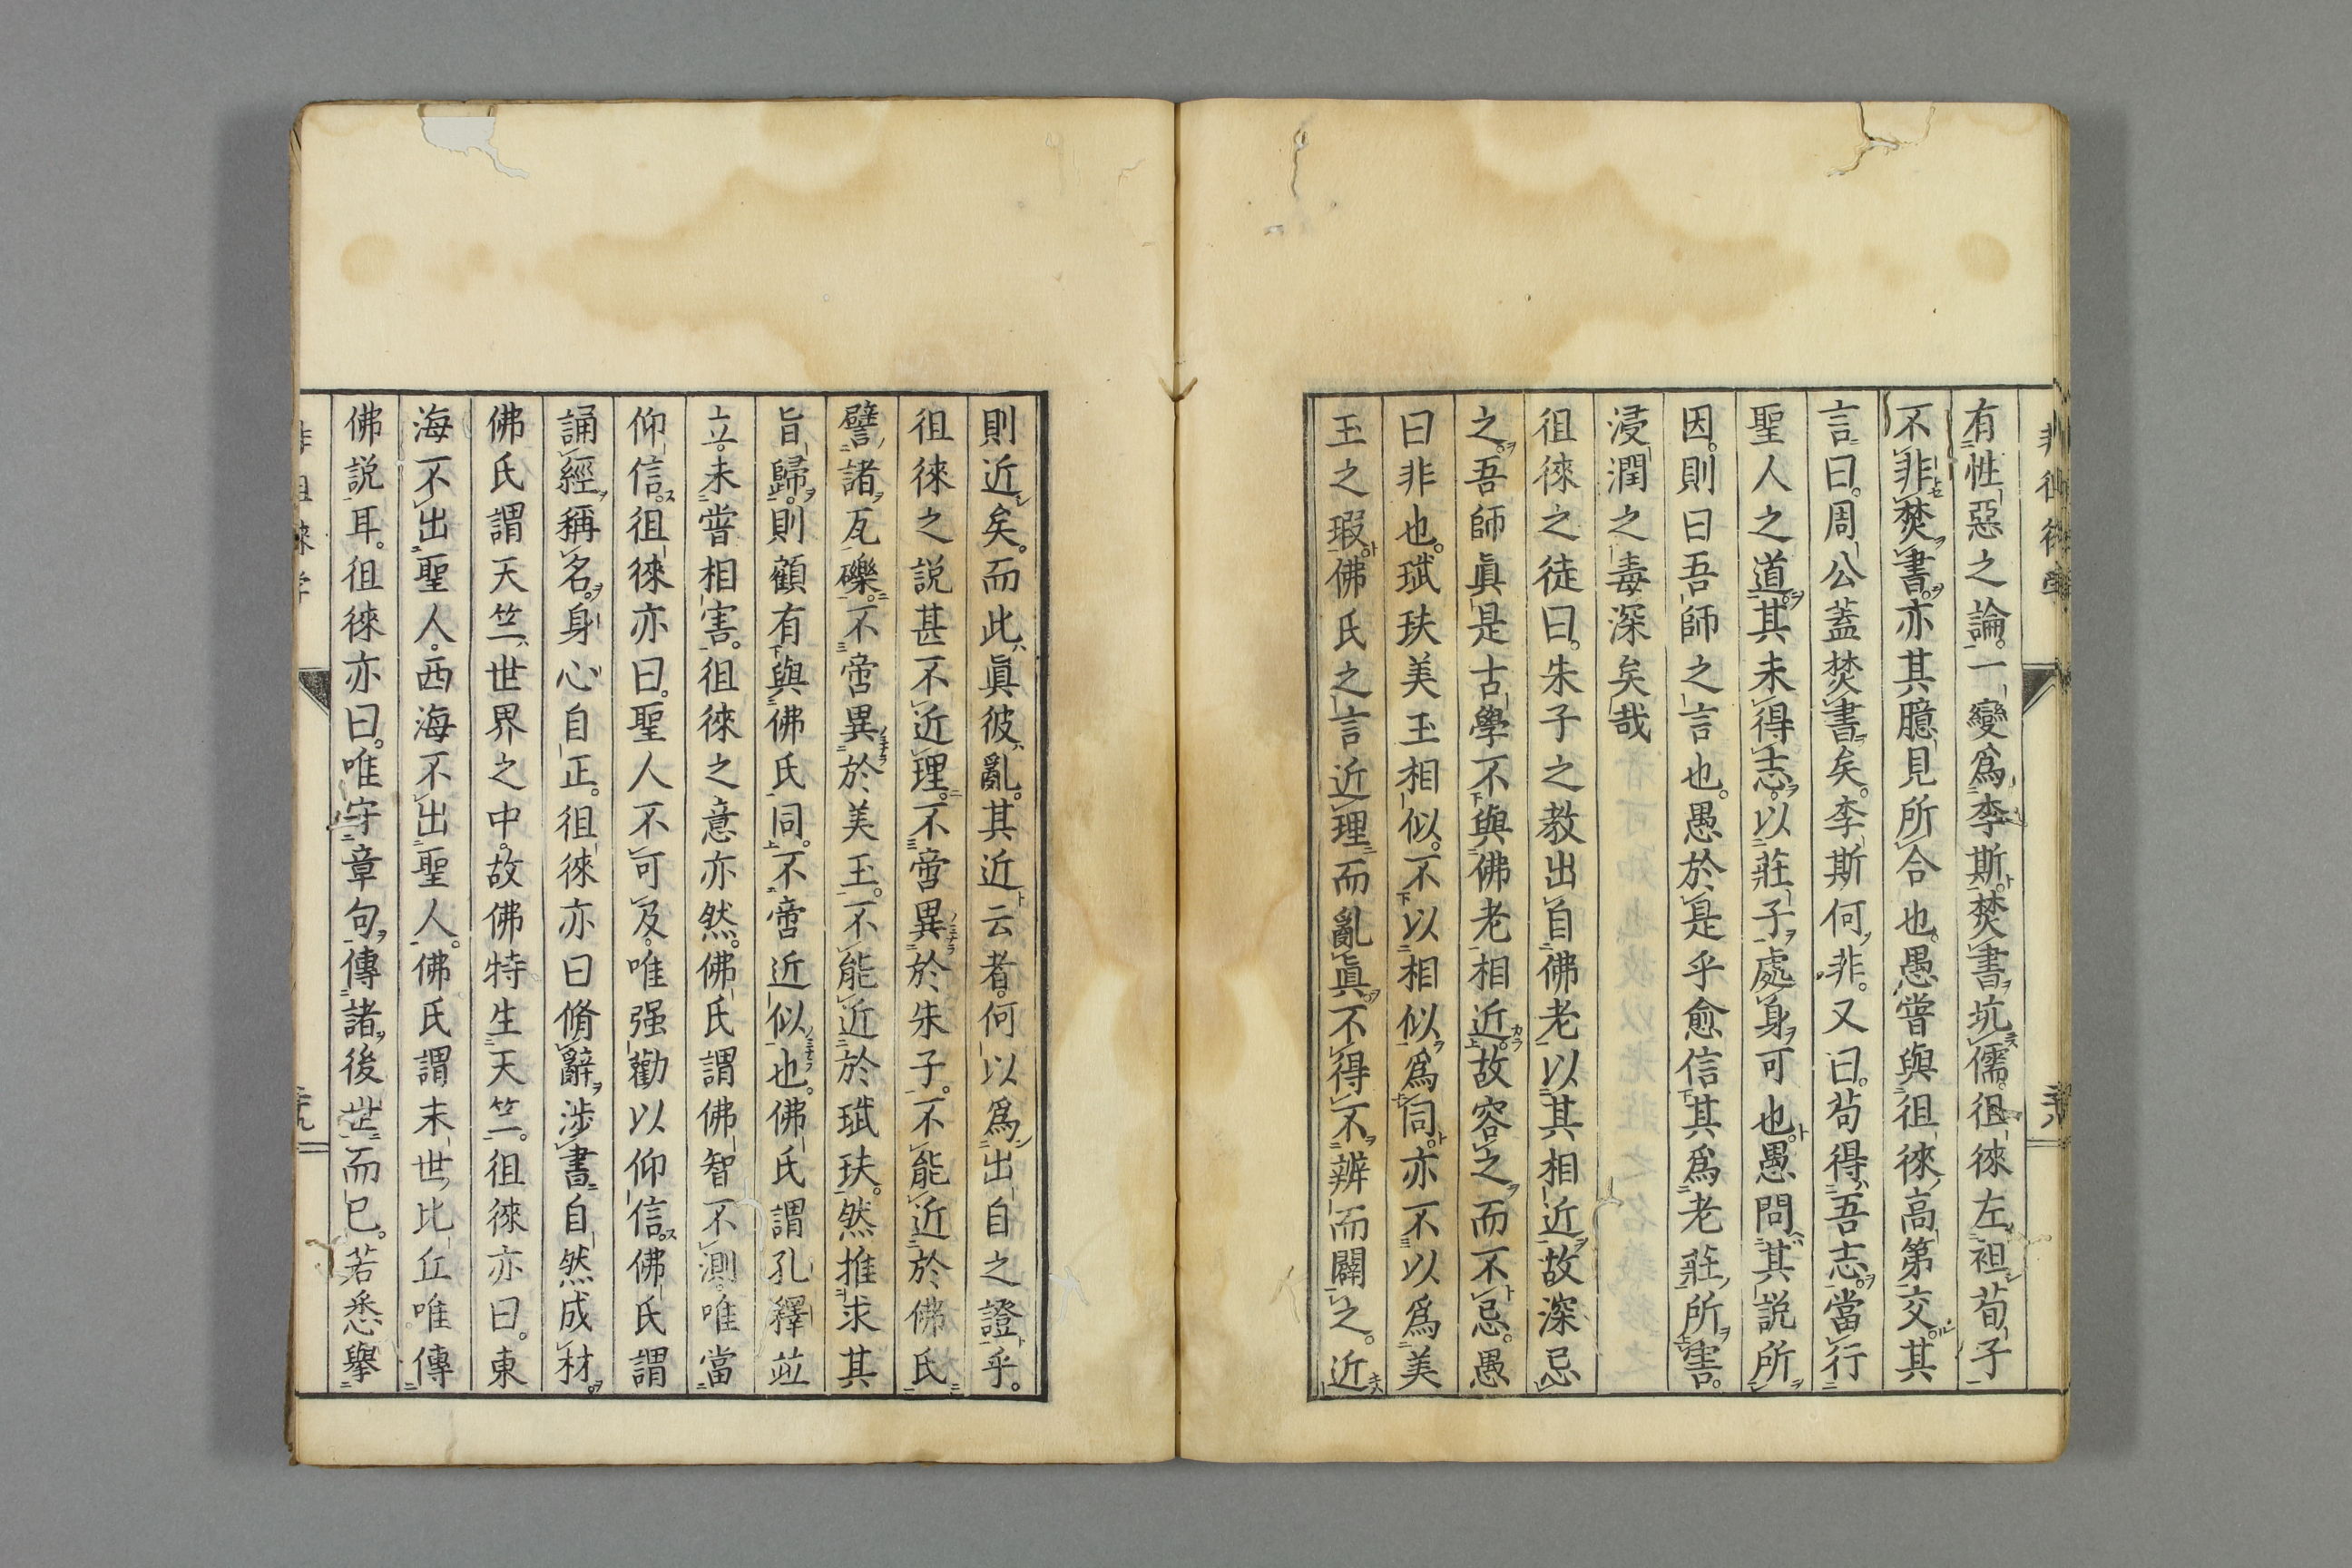 有性惡之論。一變爲李斯。焚書坑儒。徂徠左袒荀子
不非焚書。亦其臆見所合也。愚嘗與徂徠高第交。其
言曰。周公蓋焚書矣。李斯何非。又曰。苟得吾志。當行
聖人之道。其未得志。以莊子處身可也。愚問其説所
因。則曰吾師之言也。愚於是乎愈信其爲老莊所害。
浸潤之毒深矣哉
徂徠之徒曰。朱子之教出自佛老。以其相近故深忌
之。吾師眞是古學不與佛老相近。故容之而不忌。愚
曰非也。珷玞美玉相似。不以相似爲同。亦不以爲美
玉之瑕。佛氏之言近理而亂眞。不得不辨而闢之。近
則近矣。而此眞彼亂。其近云者。何以爲出自之證乎。
徂徠之説甚不近理。不啻異於朱子。不能近於佛氏
譬諸瓦礫。不啻異於美玉。不能近於珷玞。然推求其
旨歸。則顧有與佛氏同。不啻近似也。佛氏謂孔釋竝
立。未嘗相害。徂徠之意亦然。佛氏謂佛智不測。唯當
仰信。徂徠亦曰。聖人不可及。唯强勸以仰信。佛氏謂
誦經稱名。身心自正。徂徠亦曰脩辭涉書自然成材。
佛氏謂天竺世界之中。故佛特生天竺。徂徠亦曰。東
海不出聖人。西海不出聖人。佛氏謂末世比丘唯傳
佛説耳。徂徠亦曰。唯守章句。傳諸後世而已。若悉擧